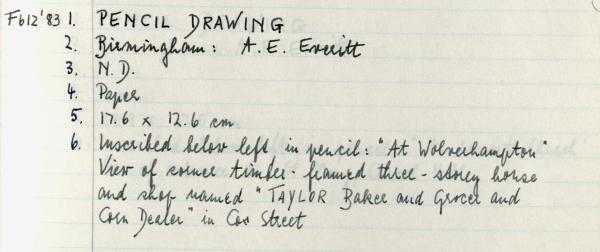 F612'83 1. PENCIL DRAWING
2. Birmingham: A. E. Everitt
3. N.D.
4. Paper
5. 17.6 x 12.6 cm
6. Inscribed below left in pencil: "At Wolverhampton"
View of corner timber-framed three-storey house
and shop named "TAYLOR Baker and Grocer and
Corn Dealer" in Cox Street